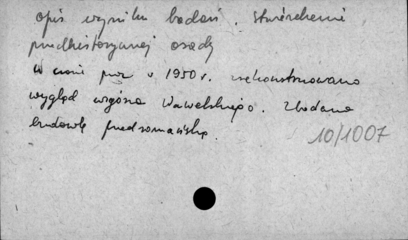 opis wyniku badań. Stwierdzenie
przedhistorycznej osady
W ciągu prac w 1950 r. zrekonstruowano
wygląd wzgórza Wawelskiego. Zbadano
budowlę przedromańską.
10/1007